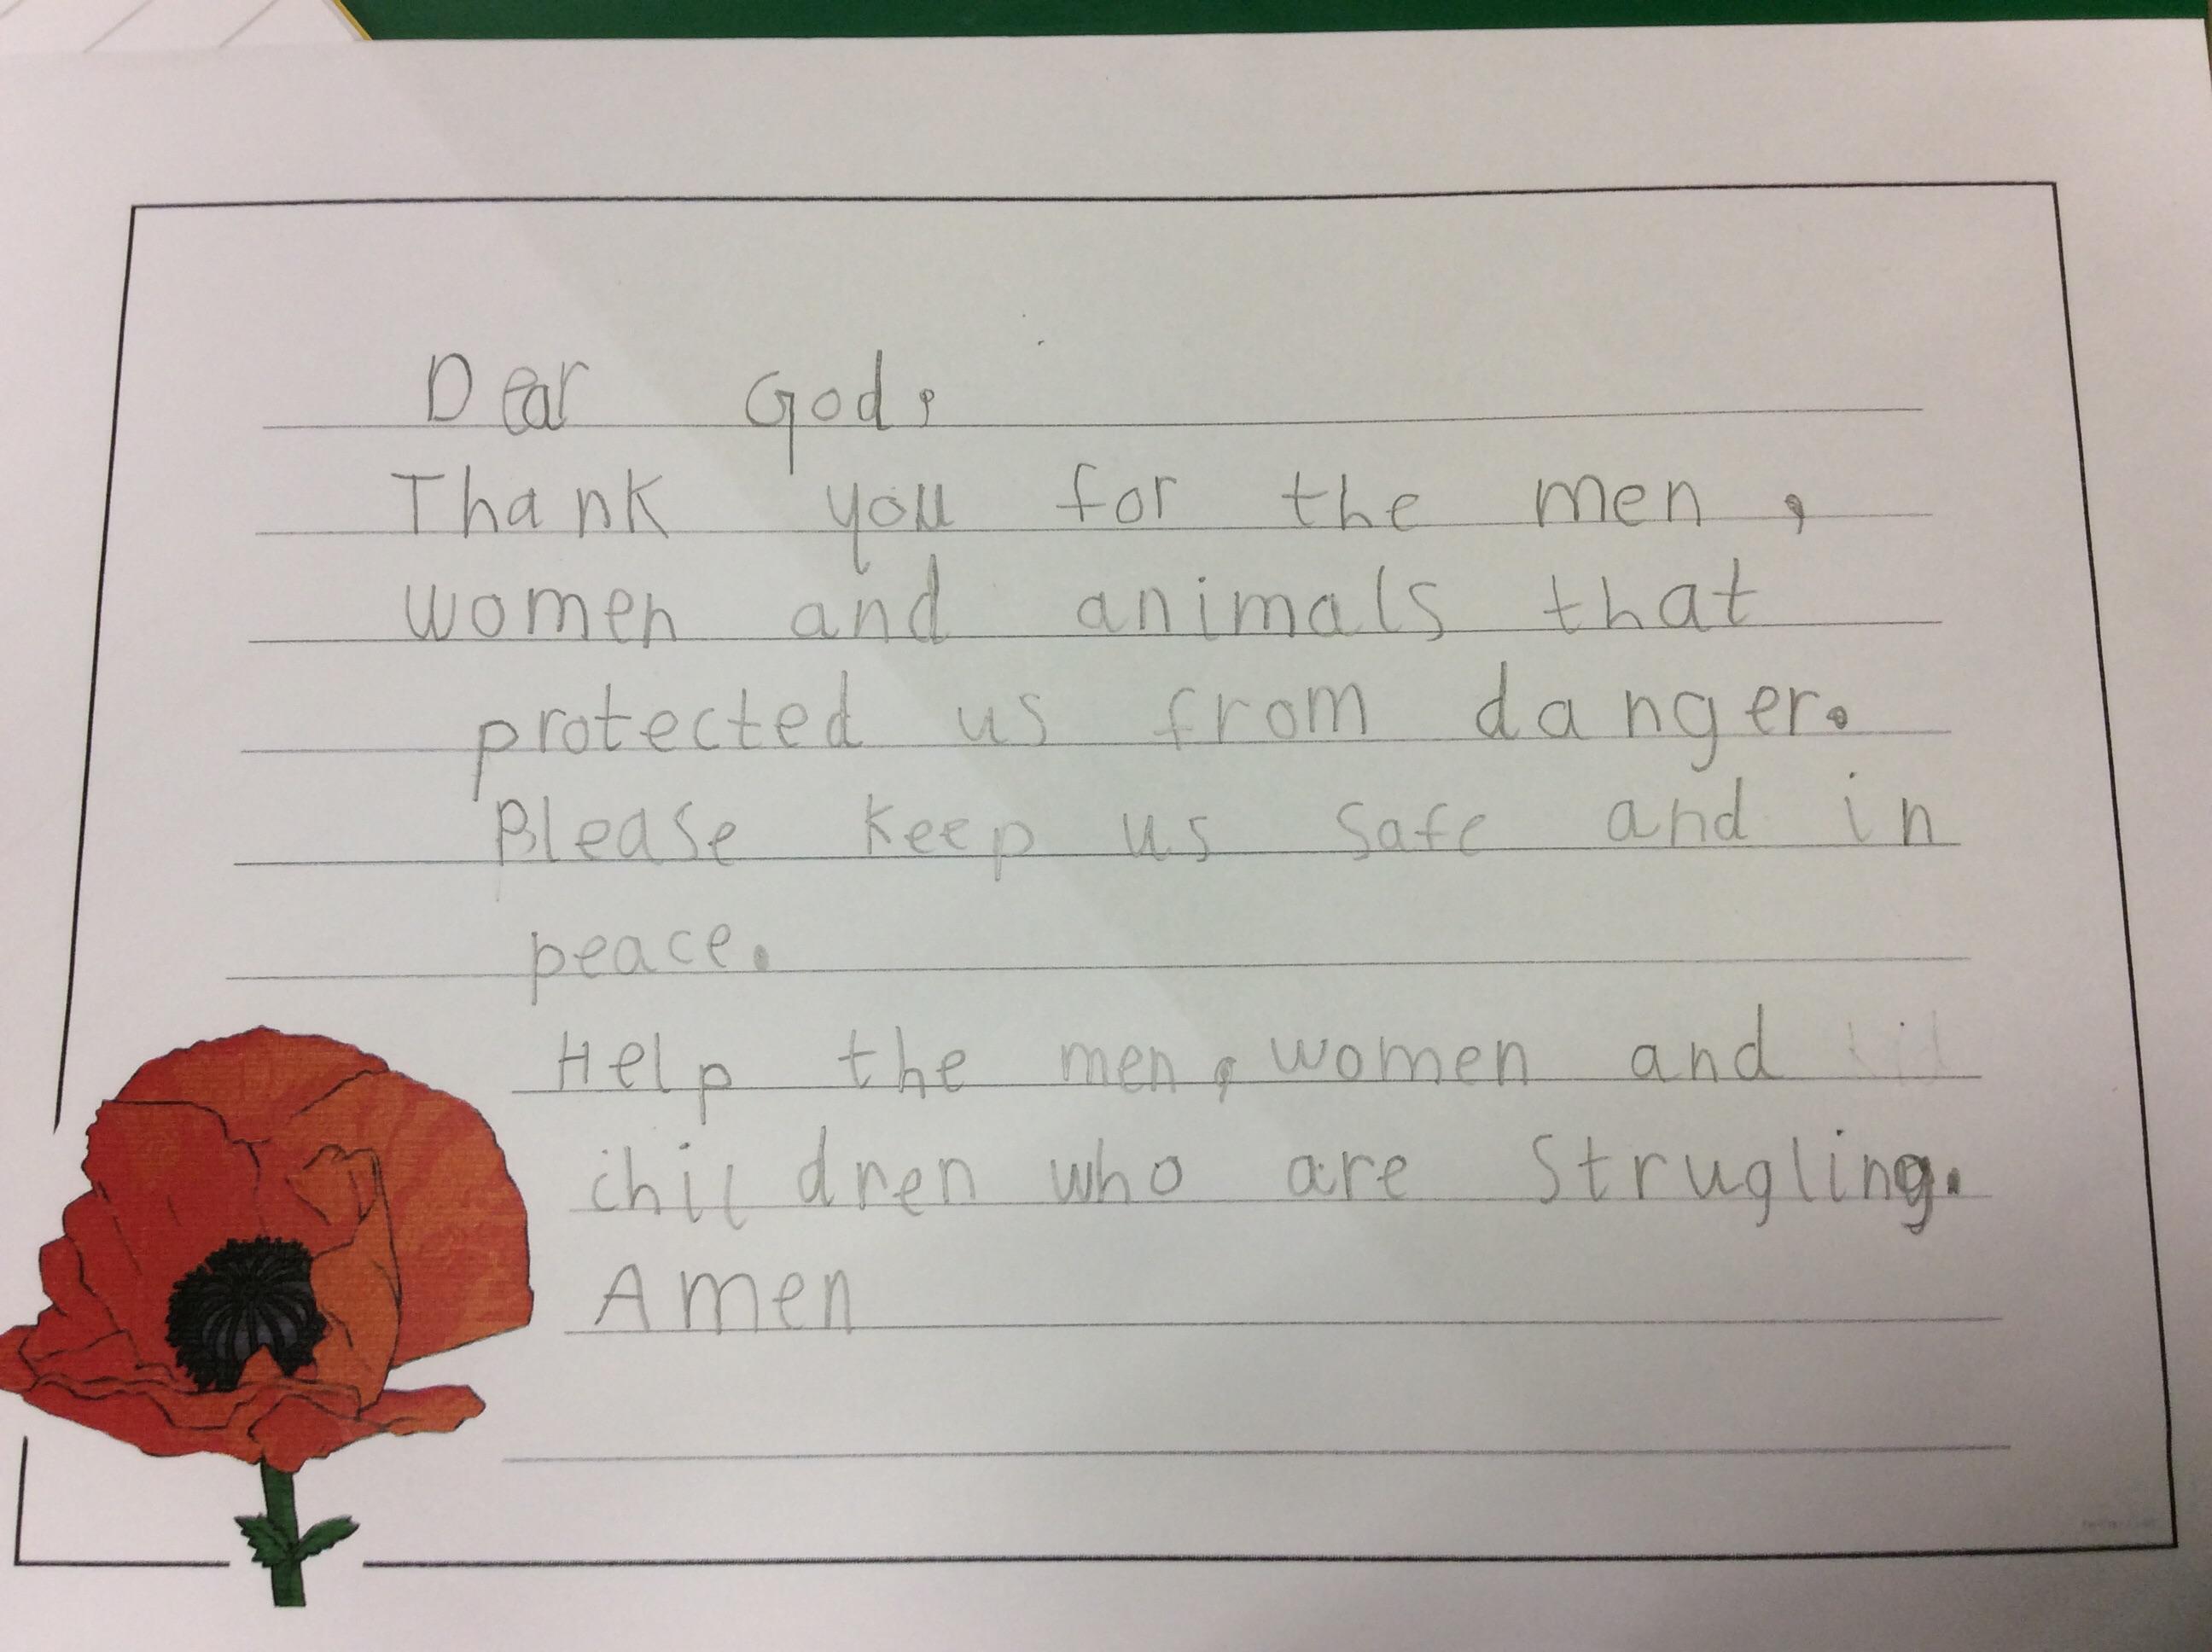 Dear God,
Thank you for the men,
women and animals that
protected us from danger.
Please keep us safe and in
peace.
Help the men, women and
children who are strugling.
Amen